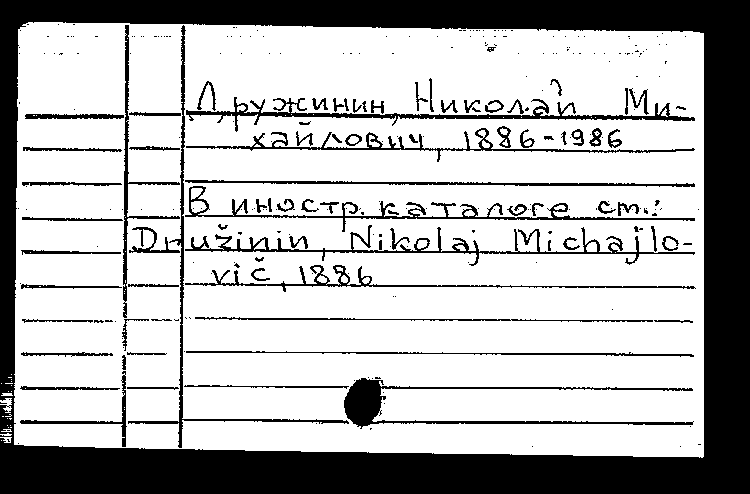 Дружинин, Николай Ми-
хайлович, 1886-1986
В иностр. каталоге см.:
Družinin, Nikolaj Michajlo-
vič, 1886